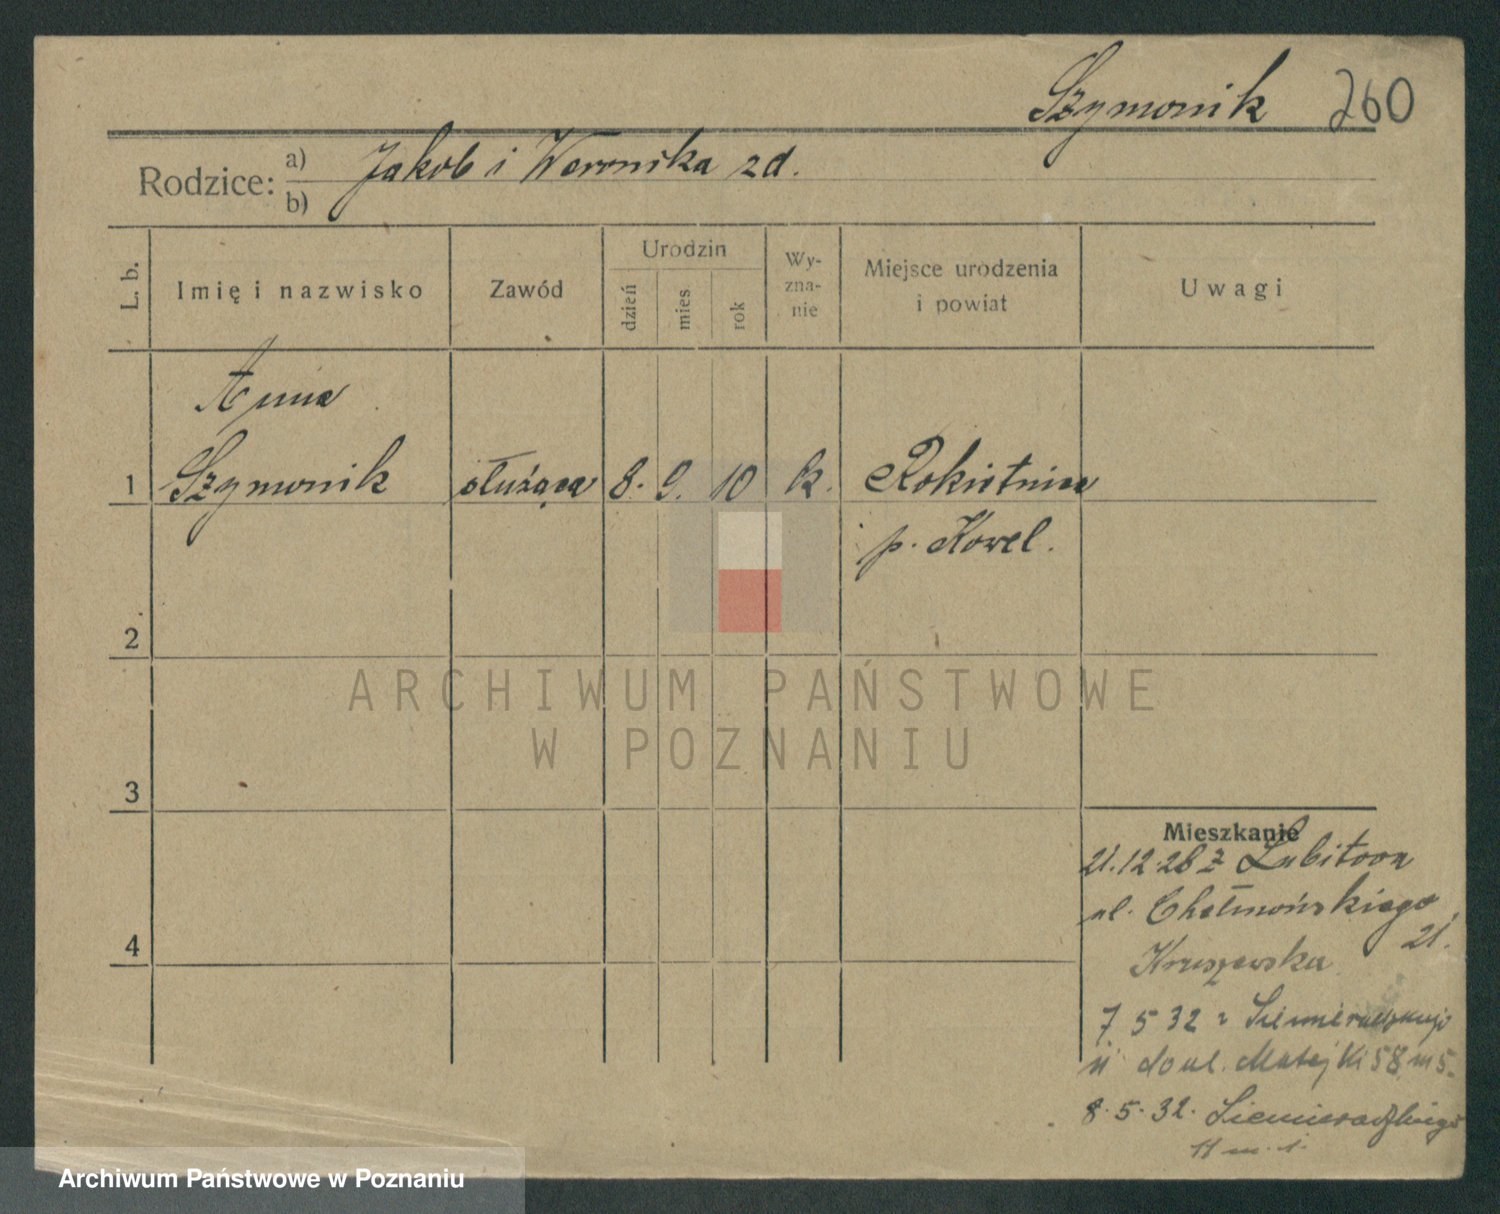 Szymonik 260
Rodzice: a) Jakób i Weronika zd.
b)
L. b. Imię i nazwisko Zawód Urodzin dzień mies rok Wy-zna-nie Miejsce urodzenia i powiat Uwagi
Anna
1 Szymonik służąca 8. 9. 10 k. Rokietnica
p. Kowel.
2
ARCHIWUM PAŃSTWOWE
W POZNANIU
3
Mieszkanie
21.12.28 z Lubitowa
ul. Chełmońskiego
21.
4
Kruszewska
7 5 32 z Siemieradzkiego
11 do ul. Matejki 58 m 5.
8.5.32. Siemieradzkiego
11 m. 1.
Archiwum Państwowe w Poznaniu